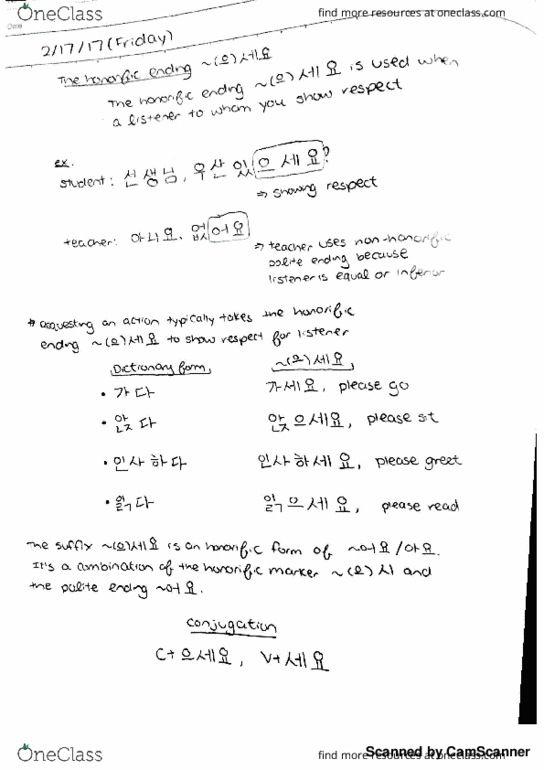 OneClass
find more resources at oneclass.com
2/17/17 (Friday)
The honorific ending ~(으)세요
The honorific ending ~(으)세요 is used when
a listener to whom you show respect
ex.
student: 선생님, 우산 있으세요?
⇒ showing respect
teacher: 아니요. 없어요
⇒ teacher uses non-honorific
polite ending because
listener is equal or inferior
* requesting an action typically takes the honorific
ending ~(으)세요 to show respect for listener
Dictionary form, ~(으)세요,
• 가다 가세요, please go
• 앉다 앉으세요, please sit
• 인사하다 인사하세요, please greet
• 읽다 읽으세요, please read
The suffix ~(으)세요 is an honorific form of ~어요/아요.
It's a combination of the honorific marker ~(으)시 and
the polite ending ~어요.
Conjugation
C+으세요, V+세요
OneClass
find more resources at oneclass.com
Scanned by CamScanner